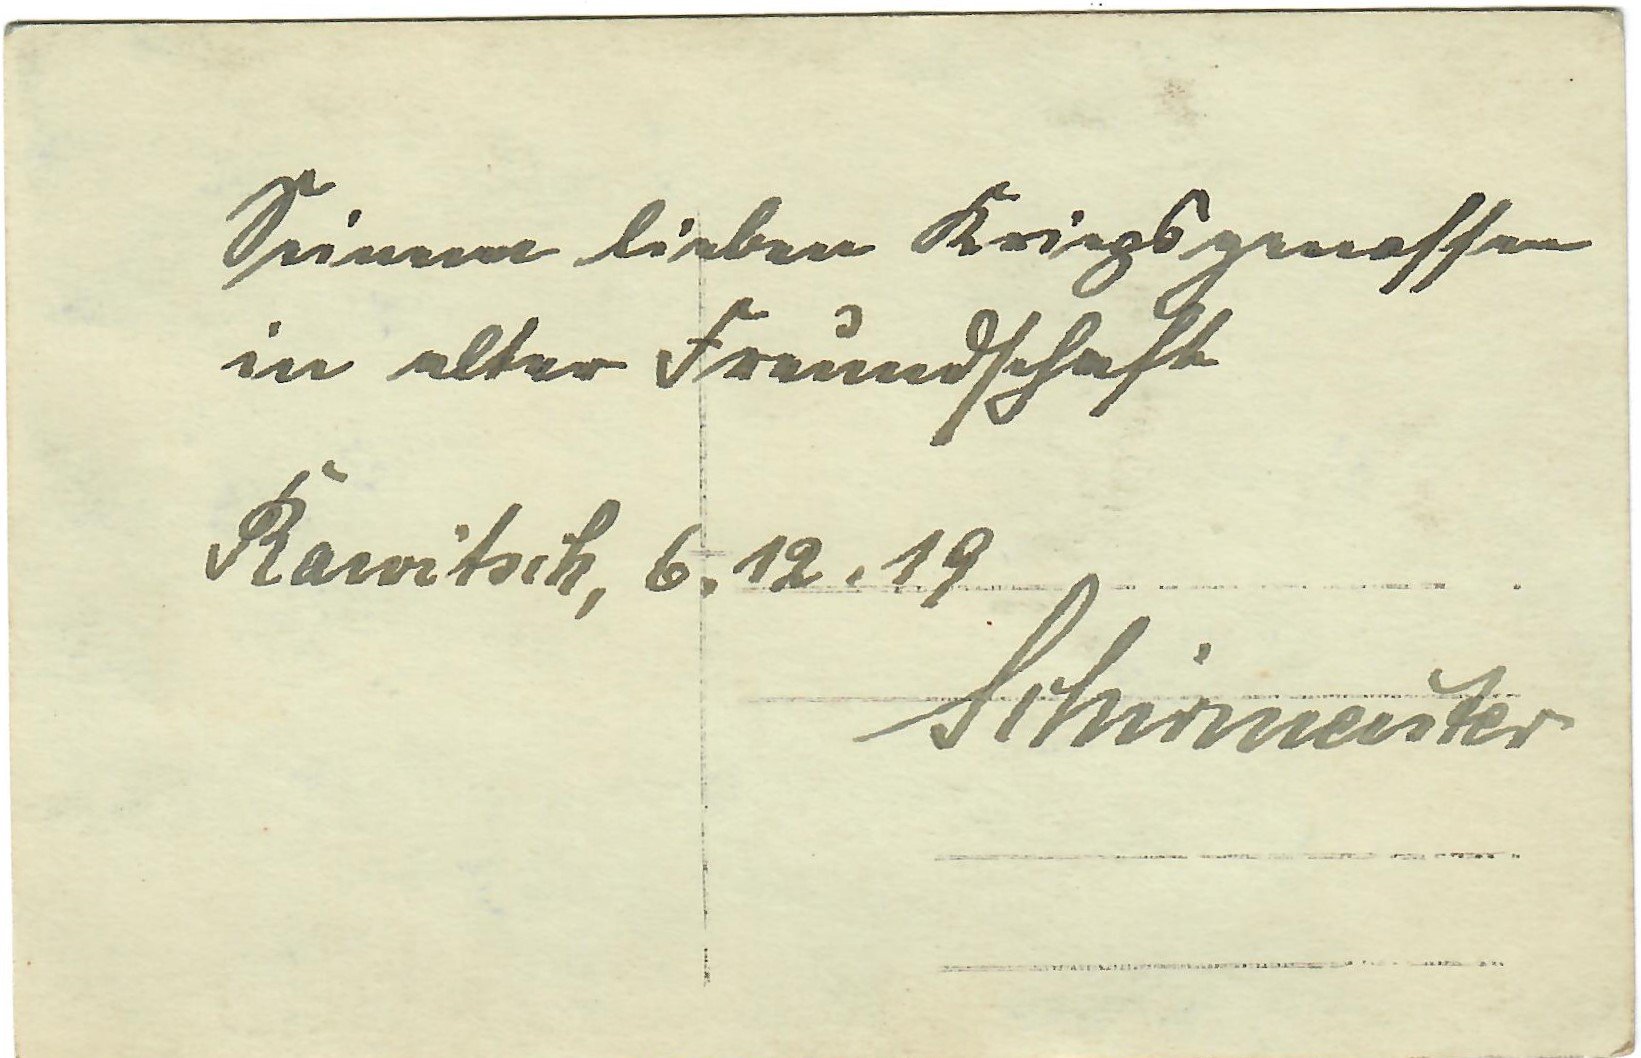 Seinem lieben Kriegsgenossen
in alter Freundschaft
Rawitsch, 6.12.19
Schirmeister